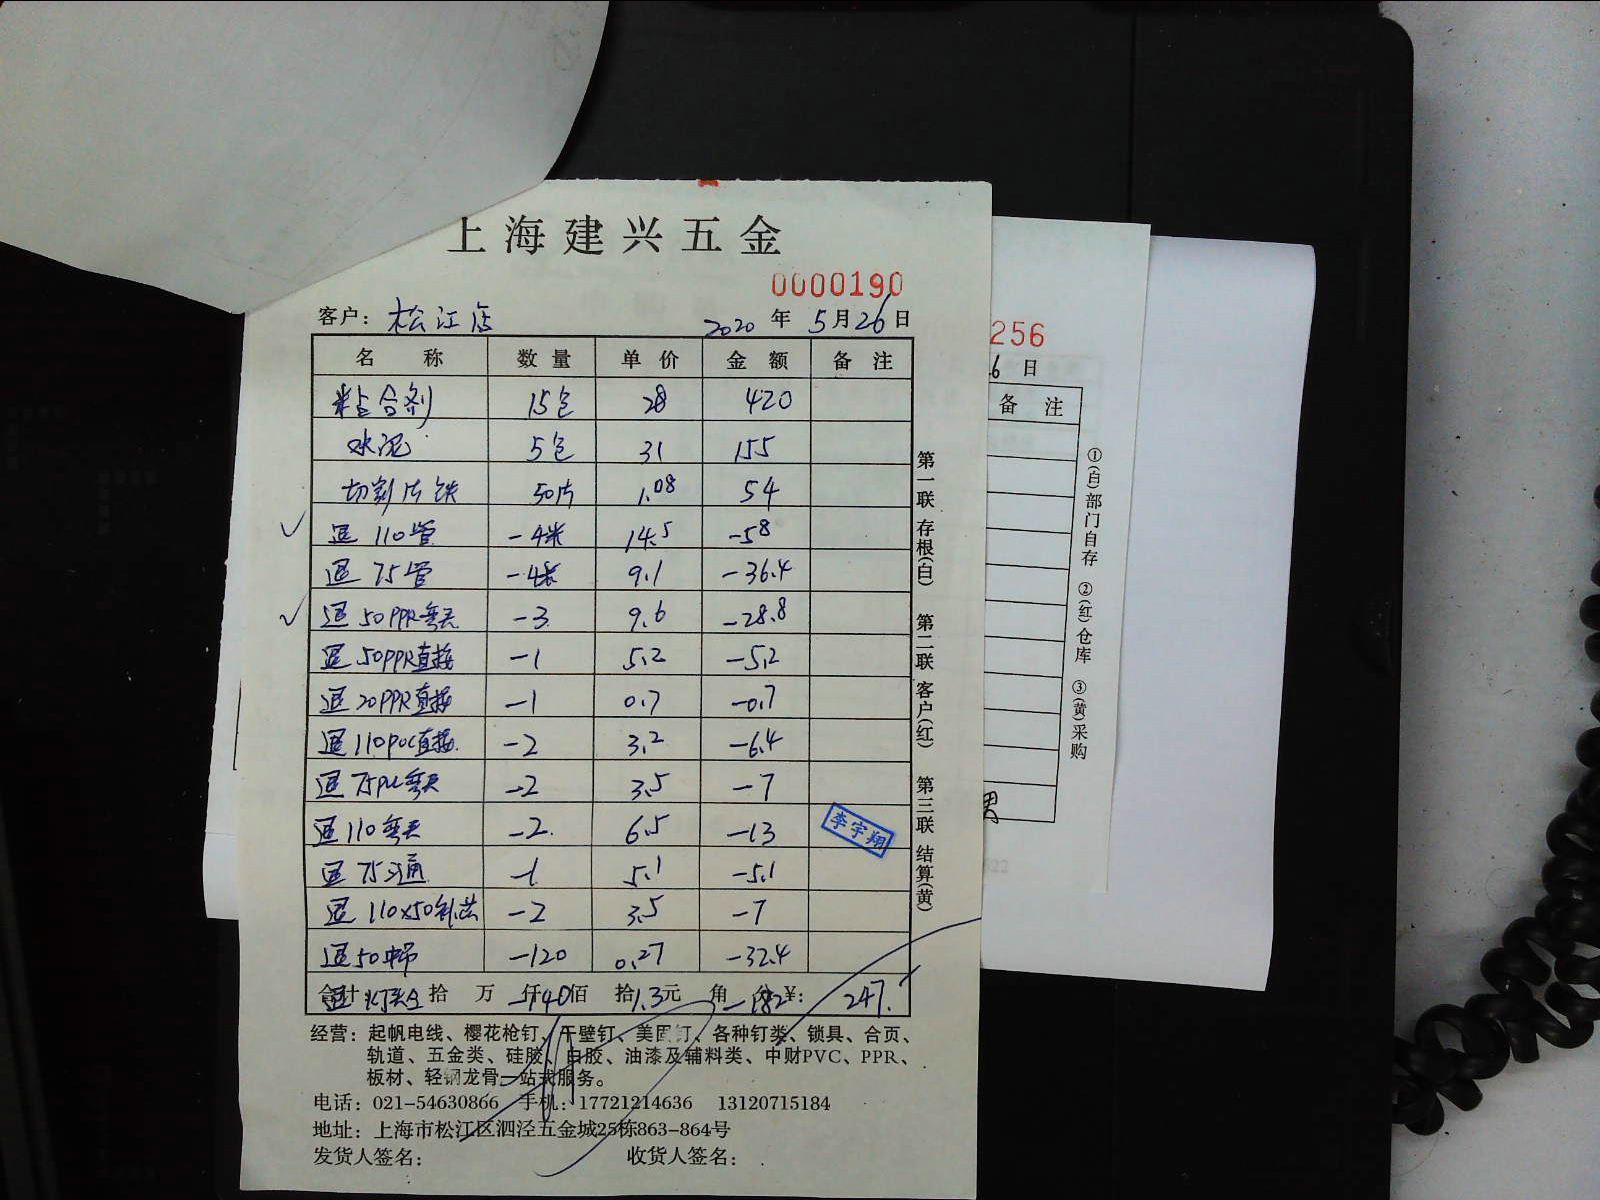 上海建兴五金
0000190
客户: 松江店 2020年5月26日
名称 数量 单价 金额 备注
粘合剂 15包 28 420
水泥 5包 31 155
切割片铁 50片 1.08 54
退110管 -4米 14.5 -58
退75管 -4米 9.1 -36.4
退50PPR弯头 -3 9.6 -28.8
退50PPR直接 -1 5.2 -5.2
退20PPR直接 -1 0.7 -0.7
退110PVC直接 -2 3.2 -6.4
退75PVC弯头 -2 3.5 -7
退110弯头 -2 6.5 -13
李宇翔
退75三通 -1 5.1 -5.1
退110×50补芯 -2 3.5 -7
退50 -120 0.27 -32.4
合计 拾 万 仟 佰 拾 元 角 分 ¥: 247.
退灯头盒 -140 1.3 -182
经营: 起帆电线、樱花枪钉、干壁钉、美固钉、各种钉类、锁具、合页、
轨道、五金类、硅胶、白胶、油漆及辅料类、中财PVC、PPR、
板材、轻钢龙骨一站式服务。
电话: 021-54630866 手机: 17721214636 13120715184
地址: 上海市松江区泗泾五金城25栋863-864号
发货人签名: 收货人签名:
第一联 存根(白) 第二联 客户(红) 第三联 结算(黄)
256
6日
备注
①(白)部门自存 ②(红)仓库 ③(黄)采购